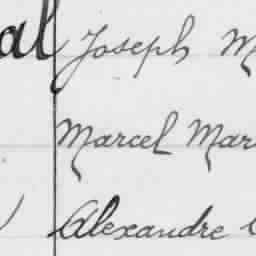 al Joseph M
Marcel Mar
Alexandre